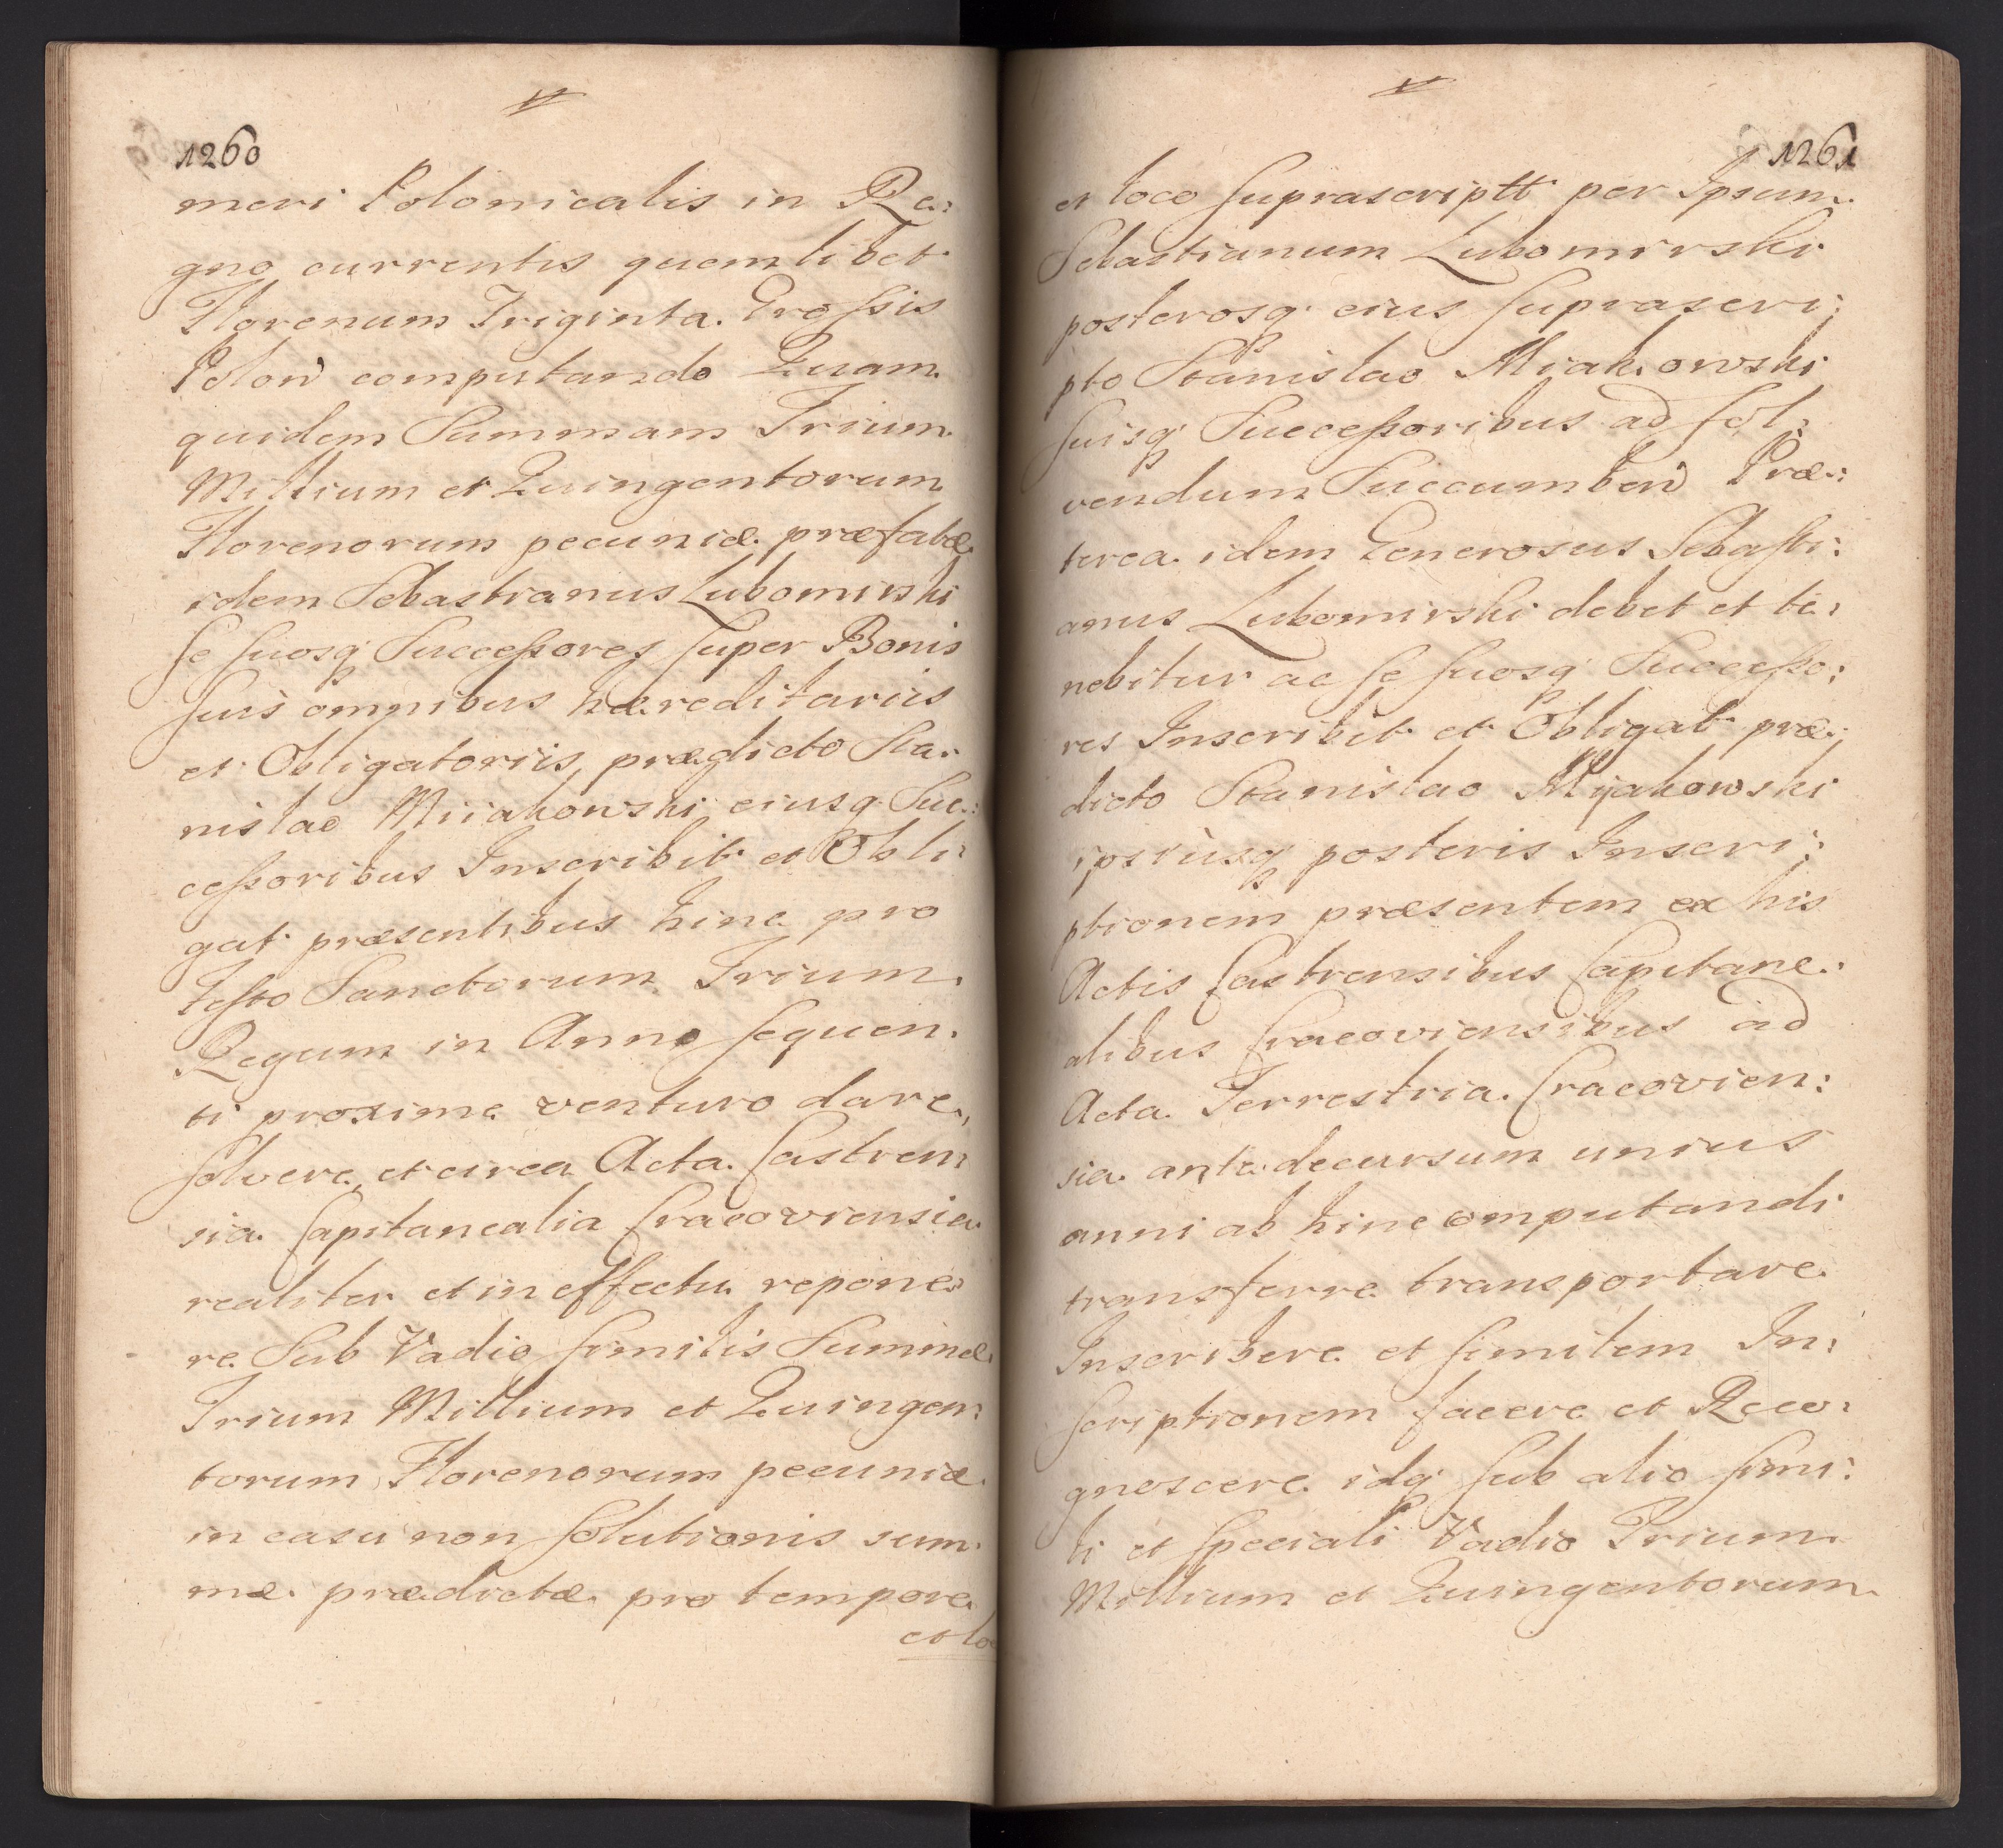 1260
meri Polonicalis in Re:
gno currentis quemlibet
Florenum Triginta Grossis
Polon̄ computando Quam
quidem Summam Trium
Millium et Quingentorum
Florenorum pecuniæ præfatæ
idem Sebastianus Lubomirski
se suosq Successores super Bonis
suis omnibus hæreditariis
et Obligatoriis, prædicto Sta:
nislao Miiakowski eiusq Suc:
cessoribus Inscribit et Obli:
gat præsentibus hinc pro
Festo Sanctorum Trium
Regum in Anno sequen:
ti proxime venturo dare,
solvere, et circa Acta Castren:
sia Capitanealia Cracoviensia
realiter et in effectu repone:
re Sub Vadio similis Summæ
Trium Millium et Quingen:
torum Florenorum pecuniæ
in casu non solutionis sum:
mæ prædictæ pro tempore
et lo
1261
et loco suprascriptt per Ipsum
Sebastianum Lubomirski
posterosq eius suprascri:
pto Stanislao Miakowski
suisq Successoribus ad sol:
vendum Succumben̄ Præ:
terea idem Generosus Sebasti:
anus Lubomirski debet et te:
nebitur ac se suosq Successo:
res Inscribit et Obligat præ:
dicto Stanislao Mijakowski
ipsiusq posteris Inscri:
ptionem præsentem ex his
Actis Castrensibus Capitane:
alibus Cracoviensibus ad
Acta Terrestria Cracovien:
sia ante decursum unius
anni ab hinc computandi
transferre transportare
Inscribere et similem In:
scriptionem facere et Reco:
gnoscere idq sub alio simi:
li et speciali Vadio Trium
Millium et Quingentorum